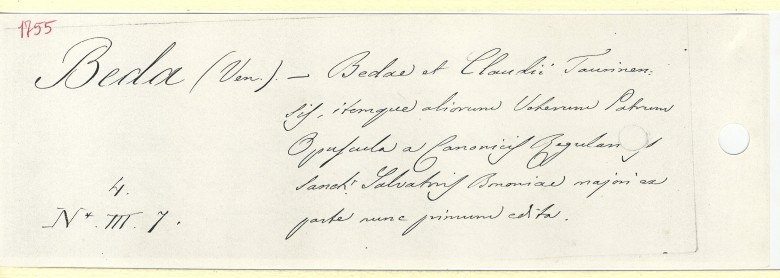 1755
Beda (Ven.). — Bedae et Claudii Taurinen:
sis, itemque aliorum Veterum Patrum
Opuscula a Canonicis Regularibus
Sancti Salvatoris Bononiae majori ex
parte nunc primum edita.
4.
N.º III. 7.